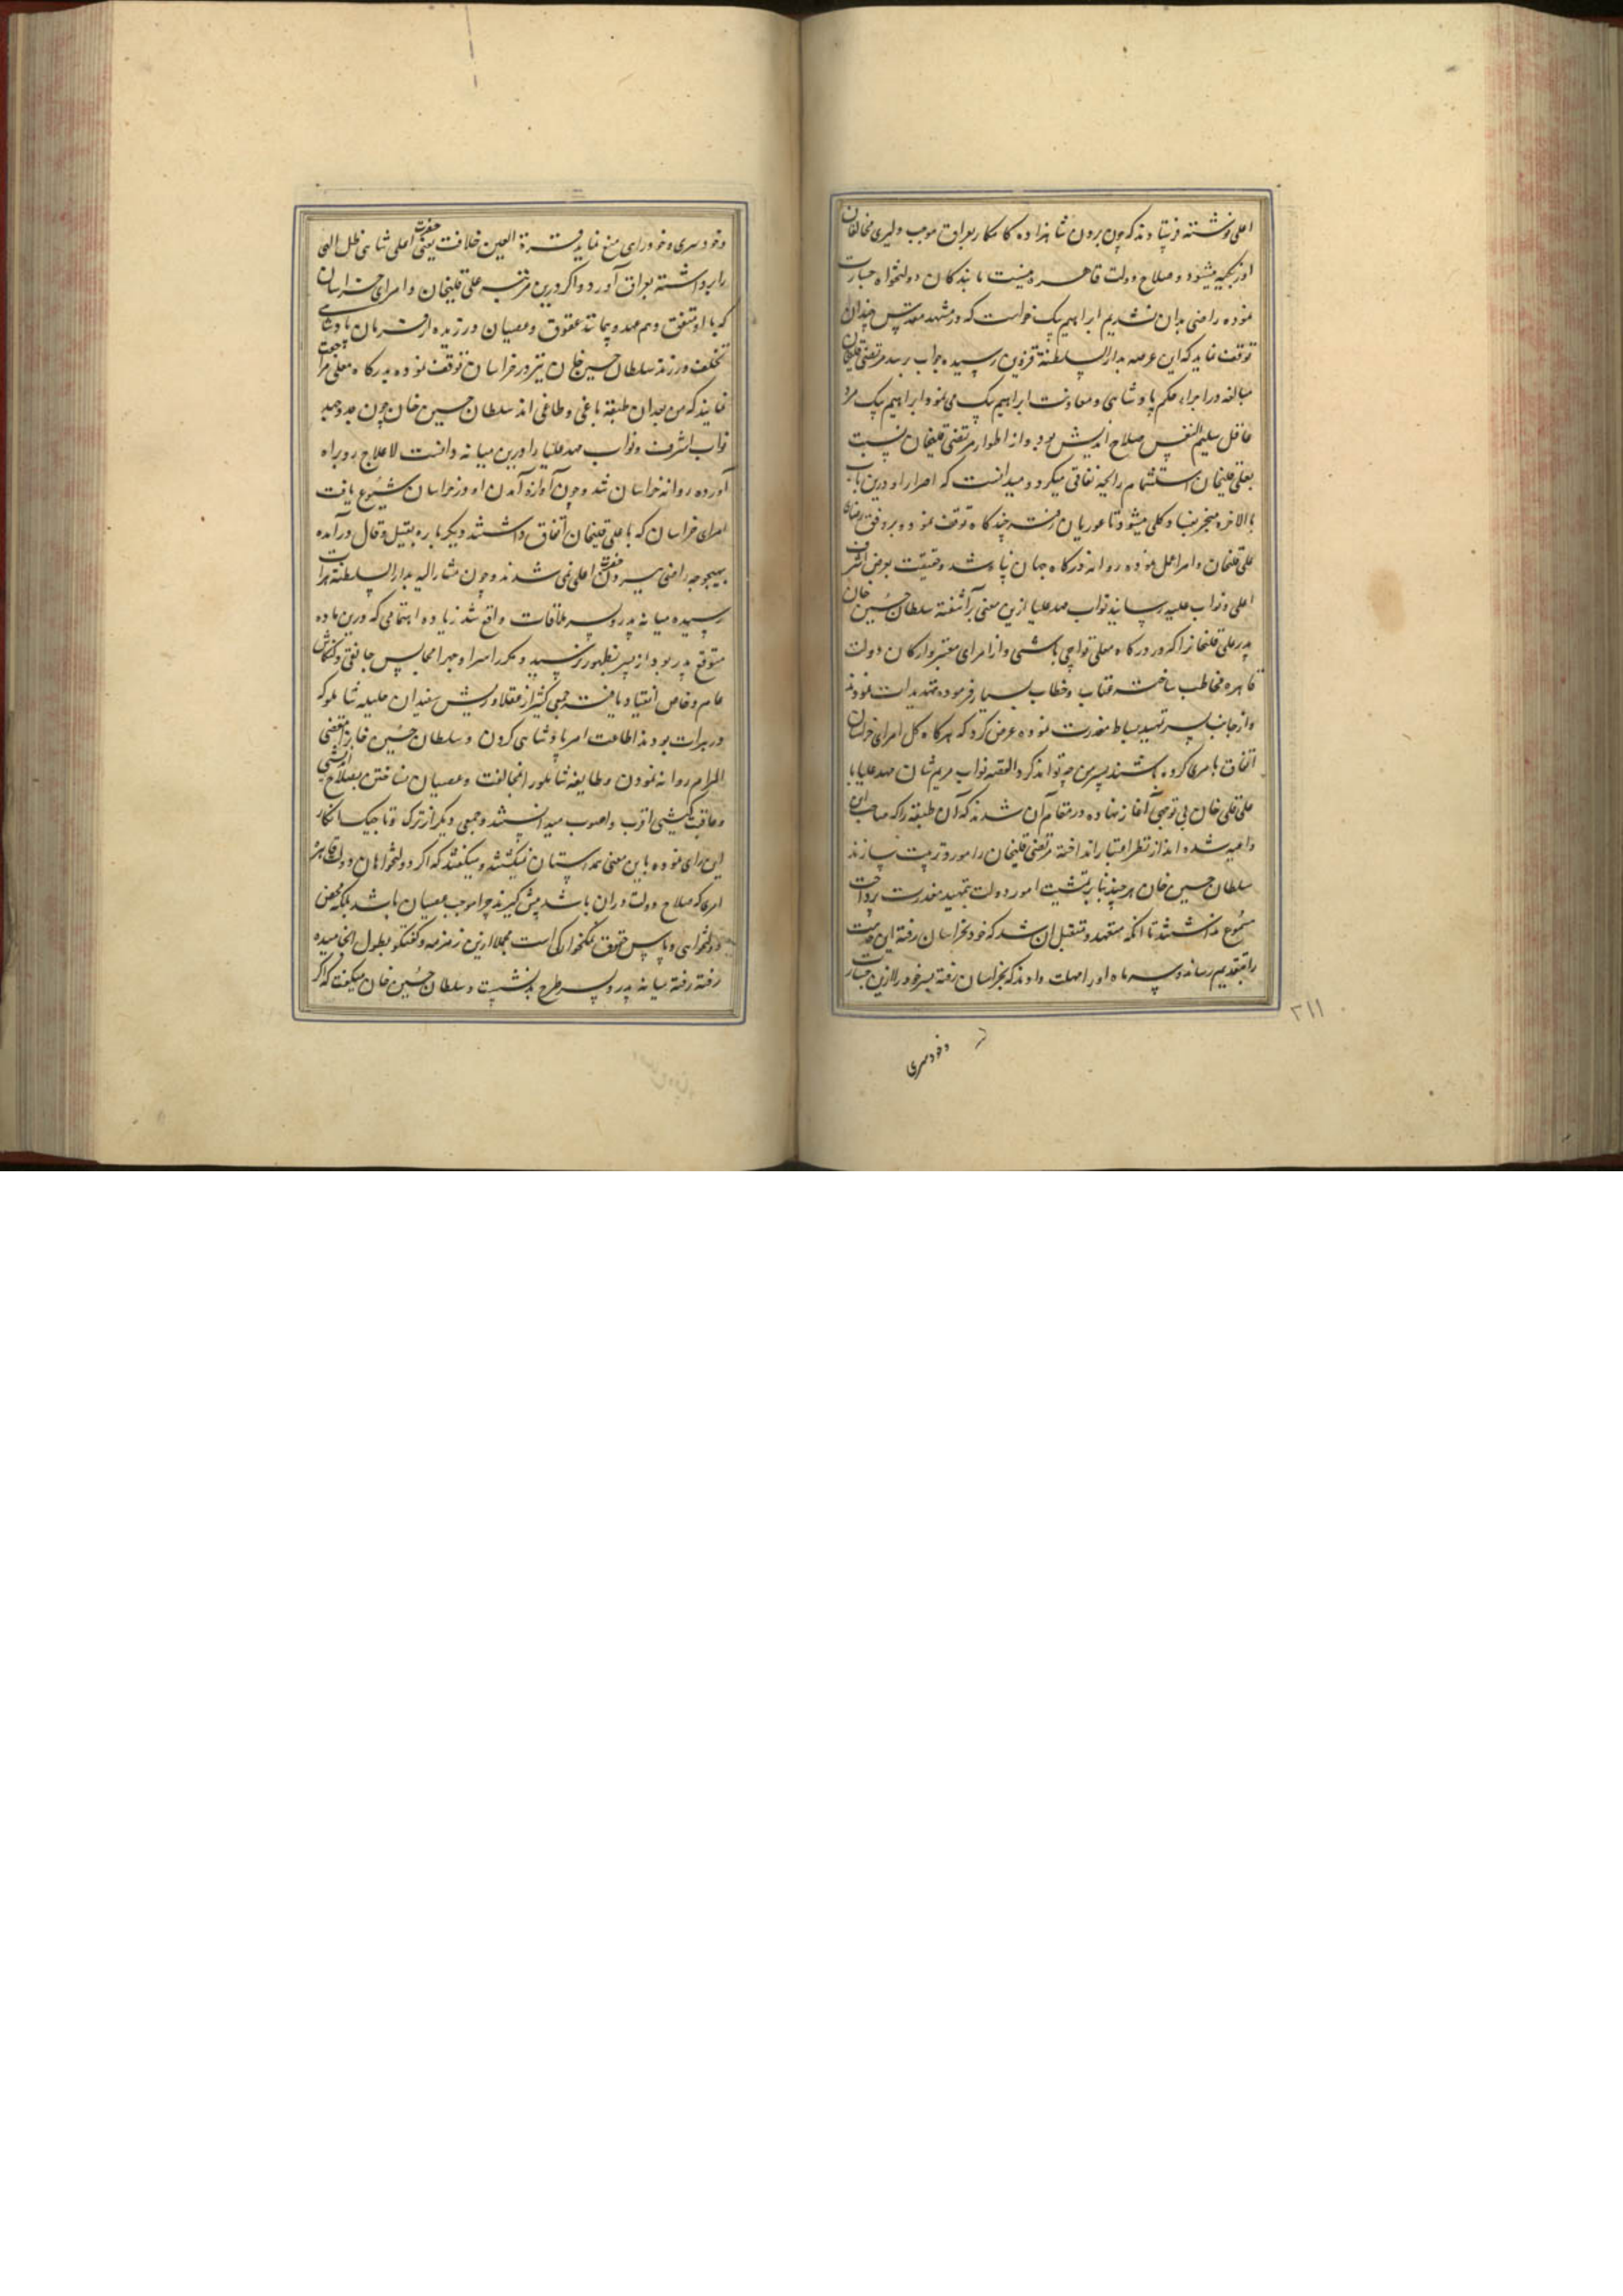 اعلی نوشته فرستادند که چون بردن شاهزاده کامکار بعراق موجب دلیری مخالفان
اوزبکیه میشود و صلاح دولت قاهره نیست ما بندگان دولتخواه جسارت
نموده راضی بدان نشدیم ابراهیم بیک خواست که در مشهد مقدس چندان
توقف نماید که این عرضه بدار السلطنة قزوین رسیده جواب برسد مرتضی قلیخان
مبالغه در اجراء حکم پادشاهی و معاونت ابراهیم بیک می نمود ابراهیم بیک مرد
عاقل سلیم النفس صلاح اندیش بود و از اطوار مرتضی قلیخان نسبت
بعلی قلیخان استشمام رایحه نفاقی میکرد و میدانست که اصرار او درین باب
بالاخره منجر بفساد کلی میشود تا غوریان رفته چند گاه توقف نمود و بر وفق رضای
علی قلیخان و امرا عمل نموده روانه درگاه جهان پناه شد و حقیقت بعرض اشرف
اعلی و نواب علیه رسانید نواب مهد علیا ازین معنی برآشفته سلطان حسین خان
پدر علی قلیخانرا که در درگاه معلی تواچی باشی و از امرای معتبر و ارکان دولت
قاهره مخاطب ساخته عتاب و خطاب بسیار فرموده تهدیدات نمودند
و از جانب پسر تمهید بساط معذرت نموده عرض کرد که هرگاه کل امرای خراسان
اتفاق بامری کرده باشند پسر من چه تواند کرد القصه نواب مریم شان مهد علیا با
علی قلی خان بی توجهی آغاز نهاده در مقام آن شدند که آن طبقه را که صاحب این
داعیه شده اند از نظر اعتبار انداخته مرتضی قلیخان را مورد تربیت سازند
سلطان حسین خان هر چند بنابر تمشیت امور دولت بتمهید معذرت پرداخت
مسموع نداشتند تا آنکه متعهد و متقبل آن شد که خود بخراسان رفته این خدمت
را بتقدیم رساند و سه ماه او را مهلت دادند که بخراسان رفته پسر خود را ازین جسارت
وخودسری
۳۱۱
وخودسری و خودرای منع نماید و قرة العین خلافت یعنی حضرت اعلی شاهی ظل الهی
را برداشته بعراق آورد و اگر درین مرتبه علی قلیخان و امرای خراسان
که با او متفق و هم عهد و پیمانند عقوق و عصیان ورزیده از فرمان پادشاهی
تخلف ورزند سلطان حسین خان نیز در خراسان توقف ننموده بدرگاه معلی مراجعت
نمایند که من بعد ان طبقه باغی و طاغی اند سلطان حسین خان چون جد و جهد
نواب اشرف و نواب مهد علیا را درین میانه دانست لاعلاج رو براه
آورده روانه خراسان شد و چون آوازه آمدن او در خراسان شیوع یافت
امرای خراسان که با علی قلیخان اتفاق داشتند دیگر باره بقیل و قال درآمده
بهیچوجه راضی ببردن حضرت اعلی نمی شدند و چون مشارالیه بدار السلطنة هرات
رسیده میانه پدر و پسر ملاقات واقع شد زیاده اهتمامی که درین ماده
متوقع پدر بود از پسر بظهور نرسید و مکرر اسرا و جهرا مجالس جانقی و کنکاش
عام و خاص انعقاد یافت جمعی کثیر از عقلا و ریش سفیدان جلیله شاملو که
در هرات بودند اطاعت امر پادشاهی کردن و سلطان حسین خانرا مقضی
المرام روانه نمودن و طایفه شاملو را بمخالفت و عصیان نساختن بصلاح اندیشی
و عاقبت گزینی اقرب و اصوب میدانستند و جمعی دیگر از ترک و تاجیک انکار
این رای نموده باین معنی همداستان نمیگشتند و میگفتند که اگر دولتخواهان دولت قاهره
امری که صلاح دولت در ان باشد پیش گیرند چرا موجب عصیان باشد بلکه محض
دولتخواهی و پاس حقوق نمکخوارگی است مجملا ازین زمزمه و گفتگو بطول انجامیده
رفته رفته میانه پدر و پسر طرح بد نشست و سلطان حسین خان میگفت که اگر